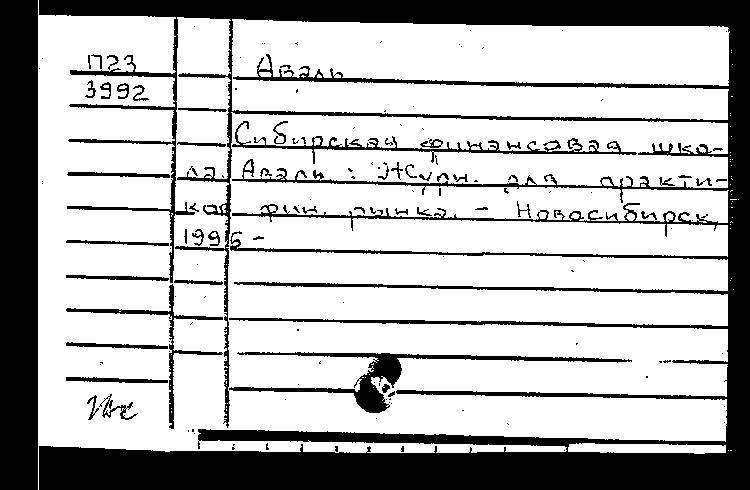 П23 Аваль
3992
Сибирская финансовая шко-
ла. Аваль : Журн. для практи-
ков фин. рынка. - Новосибирск,
1995 -